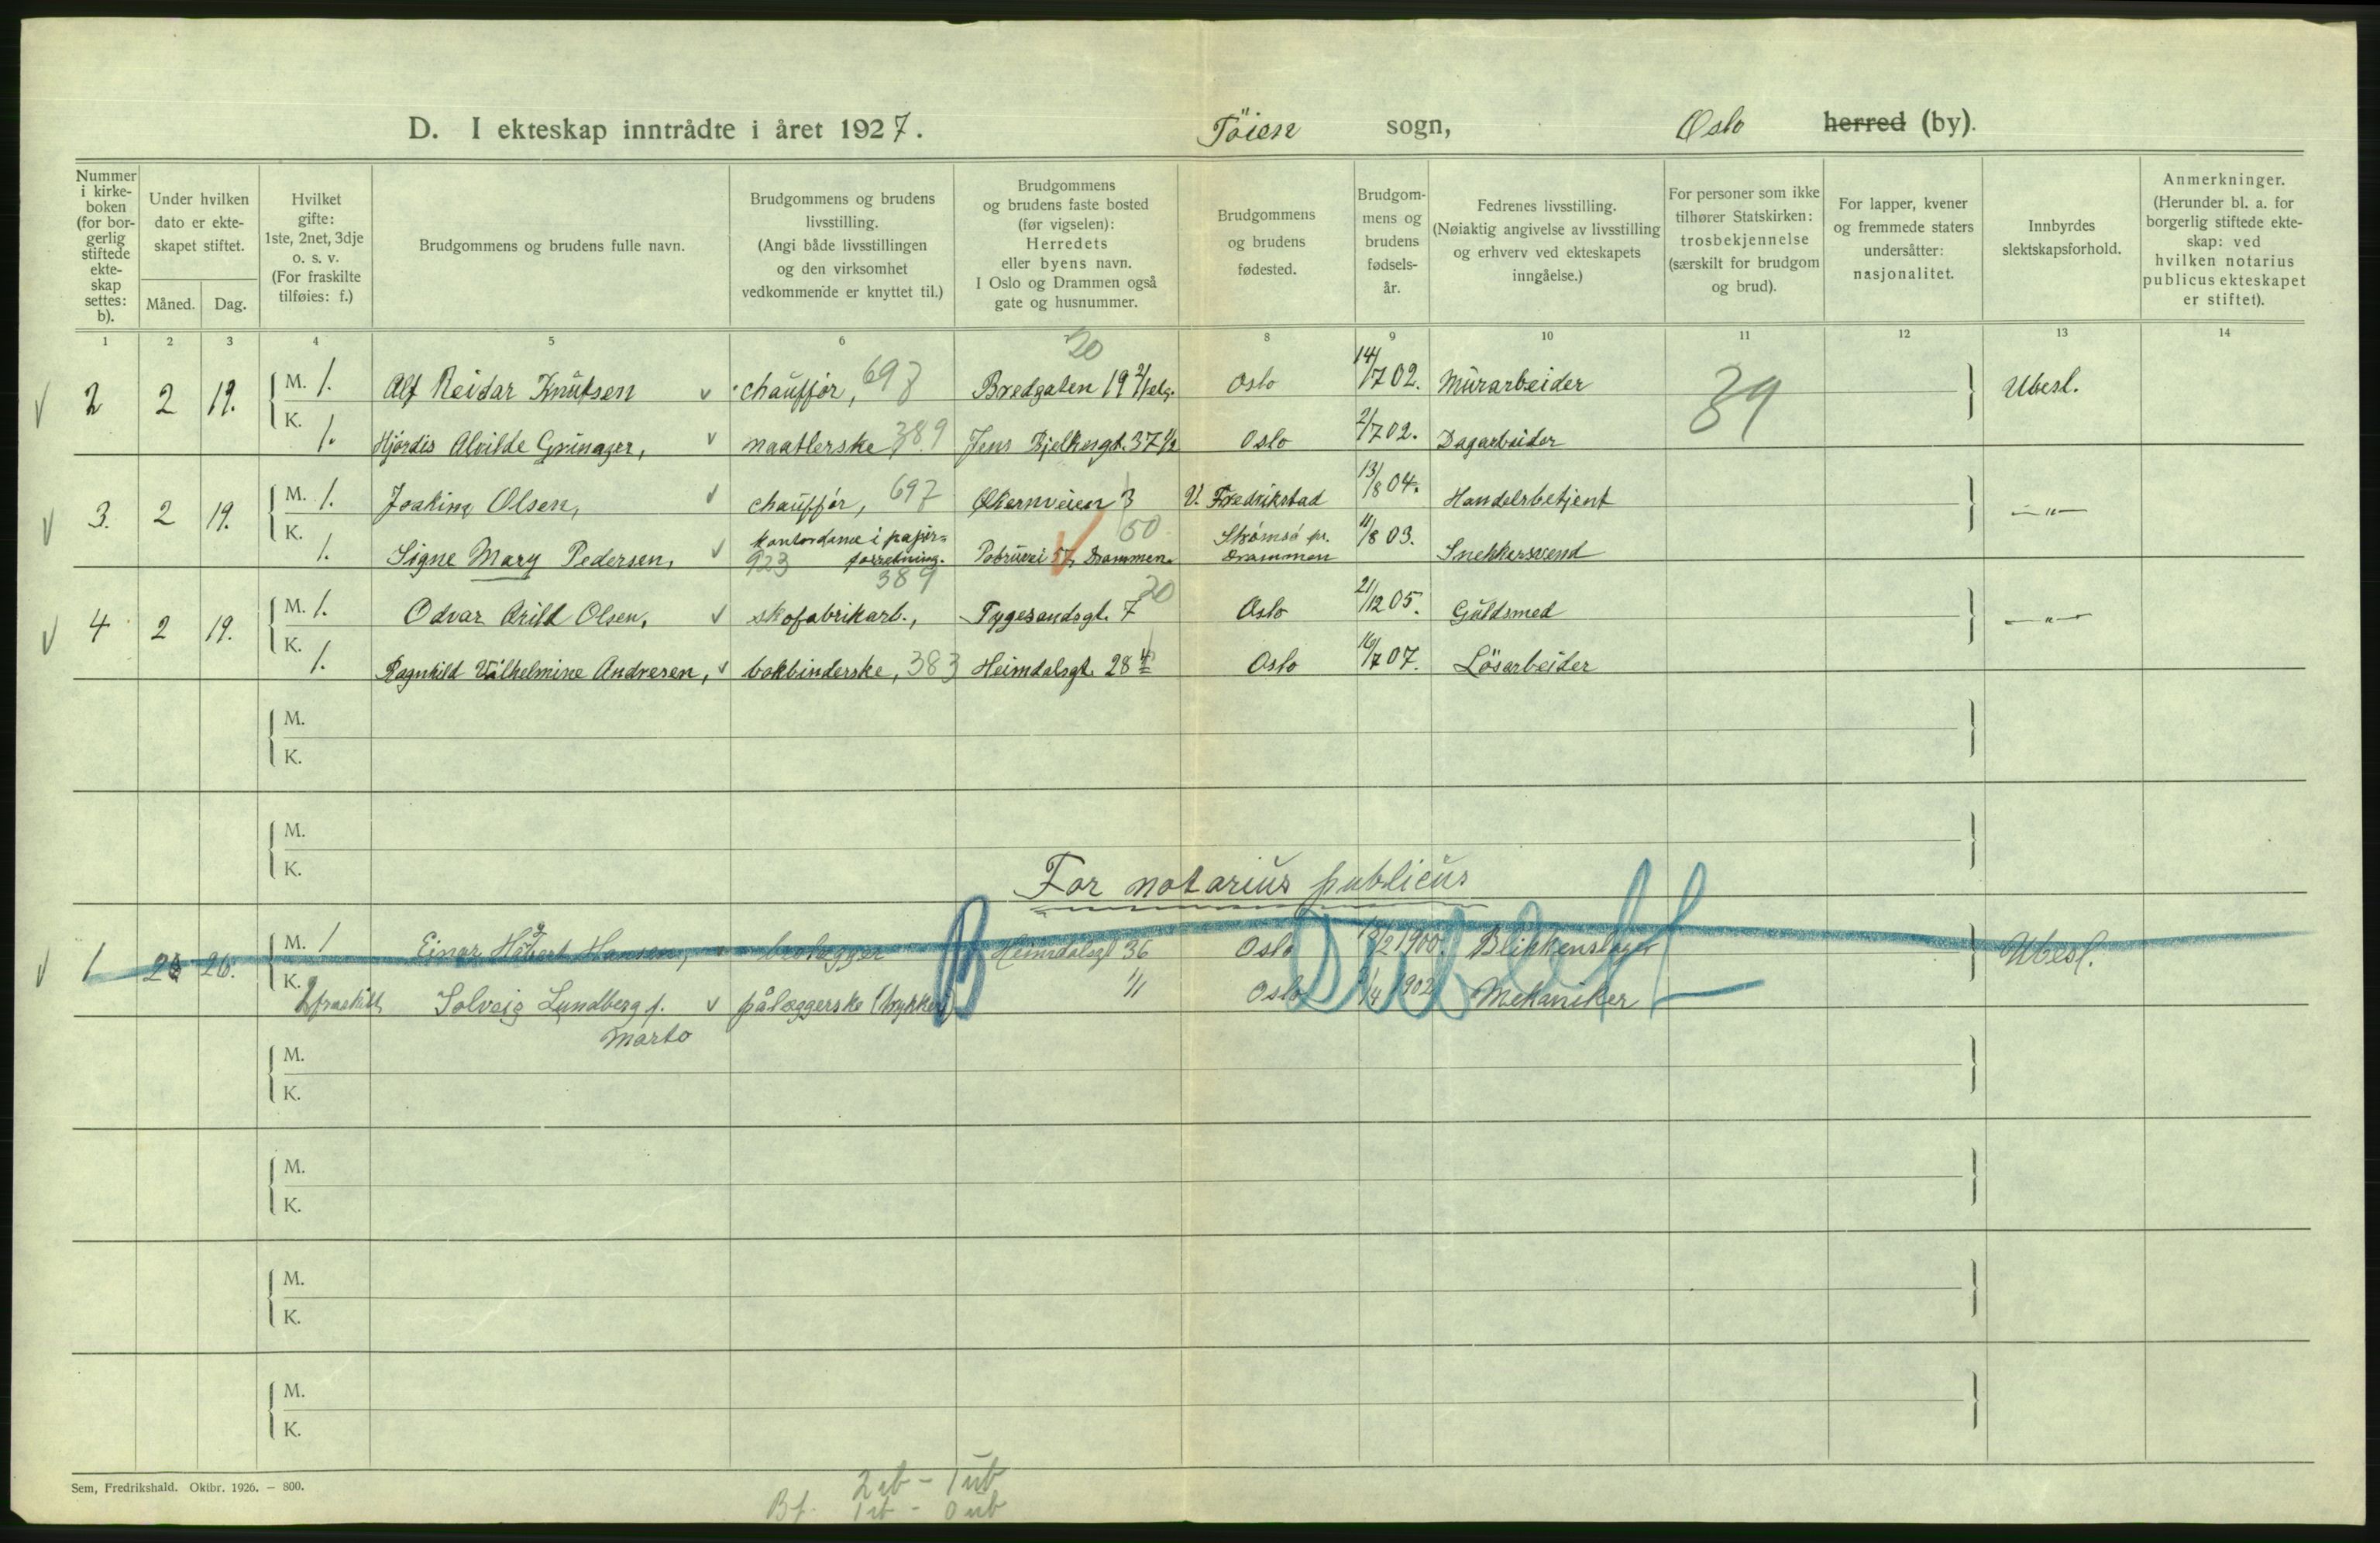 D. I ekteskap inntrådte i året 1927. Töien sogn, Oslo herred (by).
Nummer i kirkeboken (for borgerlig stiftede ekteskap settes: b).
Under hvilken dato er ekteskapet stiftet.
Måned. Dag.
Hvilket gifte: 1ste, 2net, 3dje o. s. v. (For fraskilte tilføies: f.)
Brudgommens og brudens fulle navn.
Brudgommens og brudens livsstilling. (Angi både livsstillingen og den virksomhet vedkommende er knyttet til.)
Brudgommens og brudens faste bosted (før vigselen): Herredets eller byens navn. I Oslo og Drammen også gate og husnummer.
Brudgommens og brudens fødested.
Brudgommens og brudens fødselsår.
Fedrenes livsstilling. (Nøiaktig angivelse av livsstilling og erhverv ved ekteskapets inngåelse.)
For personer som ikke tilhører Statskirken: trosbekjennelse (særskilt for brudgom og brud).
For lapper, kvener og fremmede staters undersåtter: nasjonalitet.
Innbyrdes slektskapsforhold.
Anmerkninger. (Herunder bl. a. for borgerlig stiftede ekteskap: ved hvilken notarius publicus ekteskapet er stiftet).
1 2 3 4 5 6 8 9 10 11 12 13 14
20
2 2 19. M. 1. Alf Reidar Knutsen chauffør, 697 Bredgaten 19 Oslo 14/7 02. Murarbeider 39 Ubesl.
K. 1. Hjördis Alvilde Grinager, naatlerske 389 Jens Bjelkesgt. 37 Oslo 2/7 02. Dagarbeider
3. 2 19. M. 1. Joakim Olsen, chauffør, 697 Økernveien 3 V. Fredrikstad 13/8 04. Handelsbetjent —"—
50
K. 1. Signe Mary Pedersen, kontordame i papirforretning. 923 57, Drammen. Strømsø pr. Drammen 11/8 03. Snekkersvend
389 20
4 2 19. M. 1. Odvar Arild Olsen, skofabrikarb., Tygesandsgt. 7 Oslo 21/12 05. Guldsmed —"—
K. 1. Ragnhild Vilhelmine Andresen, bokbinderske, 383 Heimdalsgt. 28 4 Oslo 16/7 07. Lösarbeider
M.
K.
M.
K.
For notarius publicus
1 2 26. M. 1 Einar Hansen, brolægger Heimdalsgt 36 Oslo 18/2 1900 Blikkenslager Ubesl.
B Dublett
K. 2 fraskilt Solveig Lundberg f. Marto pålæggerske (trykkeri) " Oslo 1/4 1902 Mekaniker
M.
K.
M.
K.
M.
K.
M.
K.
Sem, Fredrikshald. Oktbr. 1926. — 800.
2 ub - 1 ub
Bf. 1 ub - 0 ub